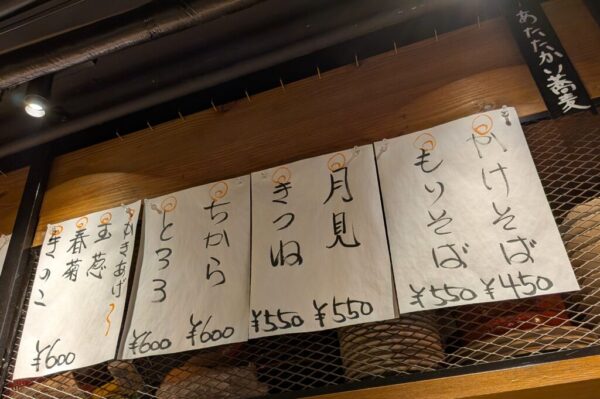 あたたかい蕎麦
かけそば ¥450
もりそば ¥550
月見 ¥550
きつね ¥550
ちから ¥600
とろろ ¥600
かきあげ
玉葱
春菊
きのこ ¥600